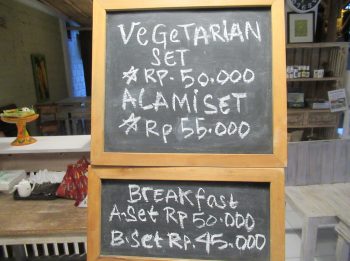 VeGeTARIAN
SET
☆ RP. 50.000
ALAMi SET
☆ Rp 55.000
BReAKfast
A.Set Rp 50.000
B.Set Rp. 45.000